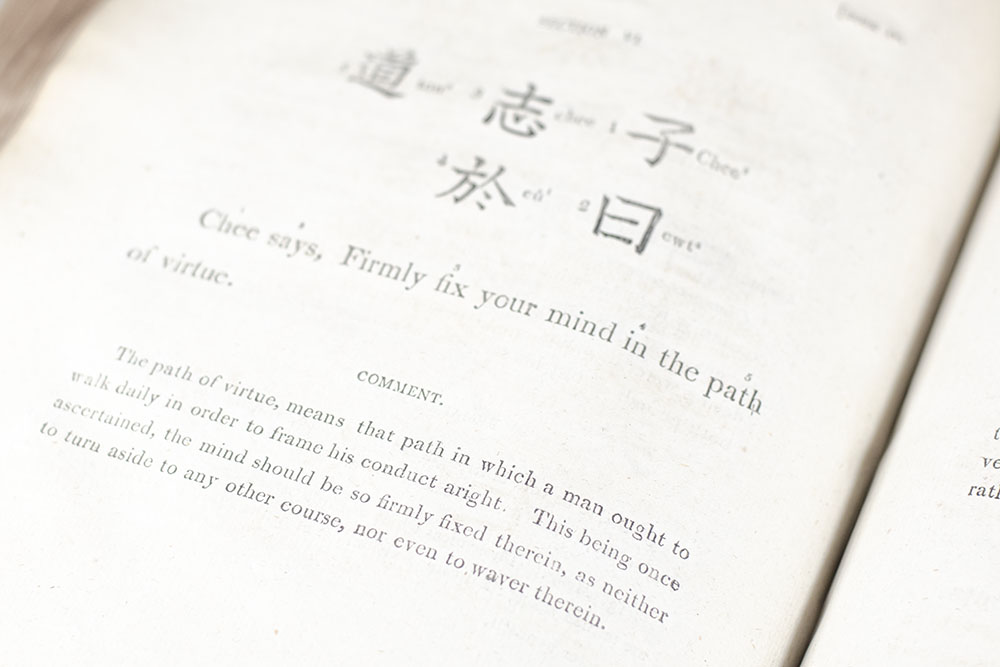 道 志 chee 1 子 Chee⁴
4 於 2 曰 ewt⁴
Chee says, Firmly fix your mind in the path
of virtue.
COMMENT.
The path of virtue, means that path in which a man ought to
walk daily in order to frame his conduct aright. This being once
ascertained, the mind should be so firmly fixed therein, as neither
to turn aside to any other course, nor even to waver therein.
ve
rat